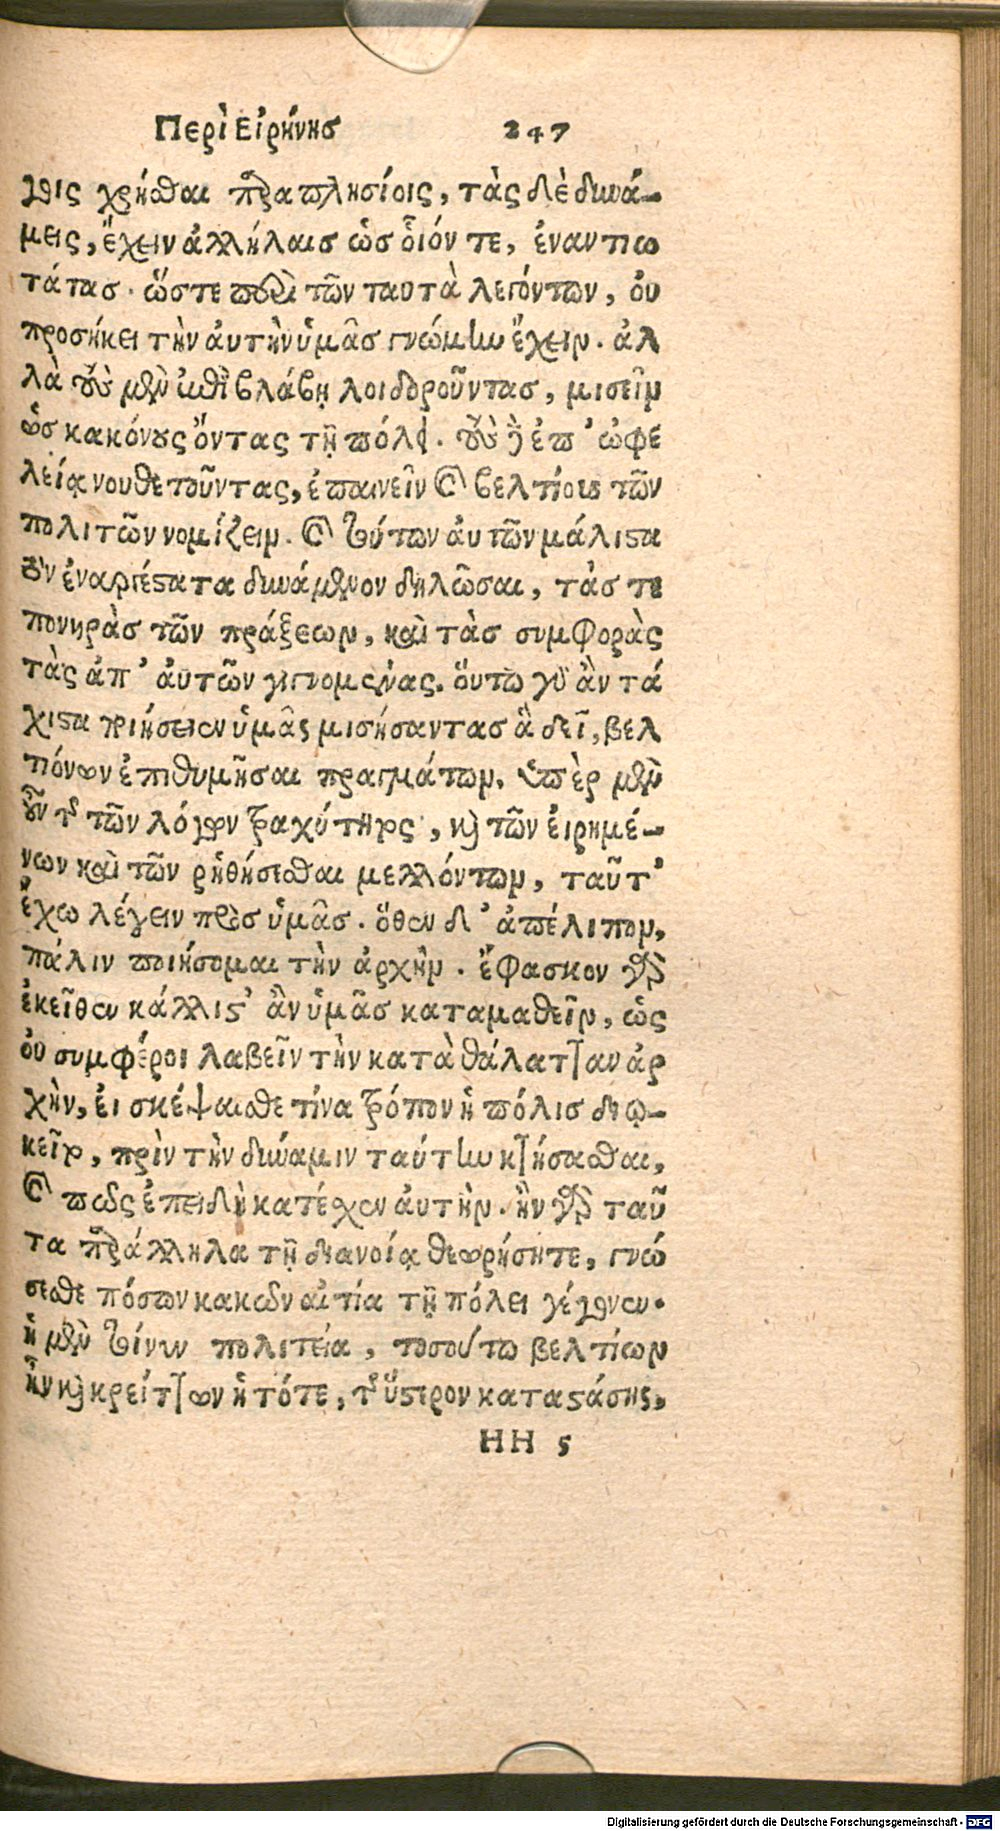 Περὶ Εἰρήνησ 247
γοις χρῆσθαι παραπλησίοις, τὰς δὲ δυνά-
μεις, ἔχειν ἀλλήλαισ ὡσ οἷόν τε, ἐναντιω
τάτασ. ὥστε περὶ τῶν ταυτὰ λεγόντων, ὀυ
προσήκει τὴν ἀυτὴν ὑμᾶσ γνώμην ἔχειν. ἀλ
λὰ τοὺς μὲν ἐπὶ βλάβῃ λοιδοροῦντασ, μισεῖν
ὡσ κακόνους ὄντας τῇ πόλει. τοὺς δὲ ἐπ’ ὠφε
λείᾳ νουθετοῦντας, ἐπαινεῖν καὶ βελτίους τῶν
πολιτῶν νομίζειν. καὶ τούτων ἀυτῶν μάλιστα
τὸν ἐναργέστατα δυνάμενον δηλῶσαι, τάσ τε
πονηρὰσ τῶν πράξεων, καὶ τὰσ συμφορὰς
τὰς ἀπ’ ἀυτῶν γιγνομένας. ὅυτω γὰρ ἂν τά
χιστα ποιήσειεν ὑμᾶς μισήσαντασ ἃ δεῖ, βελ
τιόνων ἐπιθυμῆσαι πραγμάτων. ὑπὲρ μὲν
οὖν τῆς τῶν λόγων τραχύτητος, καὶ τῶν ἐιρημέ-
νων καὶ τῶν ῥηθήσεσθαι μελλόντων, ταῦτ’
ἔχω λέγειν πρὸσ ὑμᾶσ. ὅθεν δ’ ἀπέλιπον,
πάλιν ποιήσομαι τὴν ἀρχήν. ἔφασκον γὰρ
ἐκεῖθεν κάλλιστ’ ἂν ὑμᾶσ καταμαθεῖν, ὡς
ὀυ συμφέροι λαβεῖν τὴν κατὰ θάλατταν ἀρ
χὴν, ἐι σκέψαισθε τίνα τρόπον ἡ πόλισ διῳ-
κεῖτο, πρὶν τὴν δύναμιν ταύτην κτήσασθαι,
καὶ πῶς ἐπειδὴ κατέσχεν ἀυτὴν. ἢν γὰρ ταῦ
τα παράλληλα τῇ διανοίᾳ θεωρήσητε, γνώ
σεσθε πόσων κακῶν αἰτία τῇ πόλει γέγονεν.
ἡ μὲν τοίνυν πολιτεία, τοσούτω βελτίων
ἦν καὶ κρείττων ἡ τότε, τῆς ὕστερον καταστάσης,
HH 5
Digitalisierung gefördert durch die Deutsche Forschungsgemeinschaft - DFG